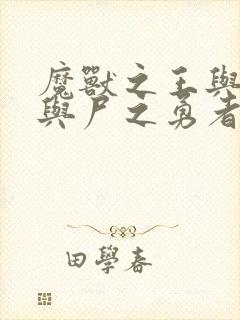 魔獸之王與
與尸之勇者
田學春